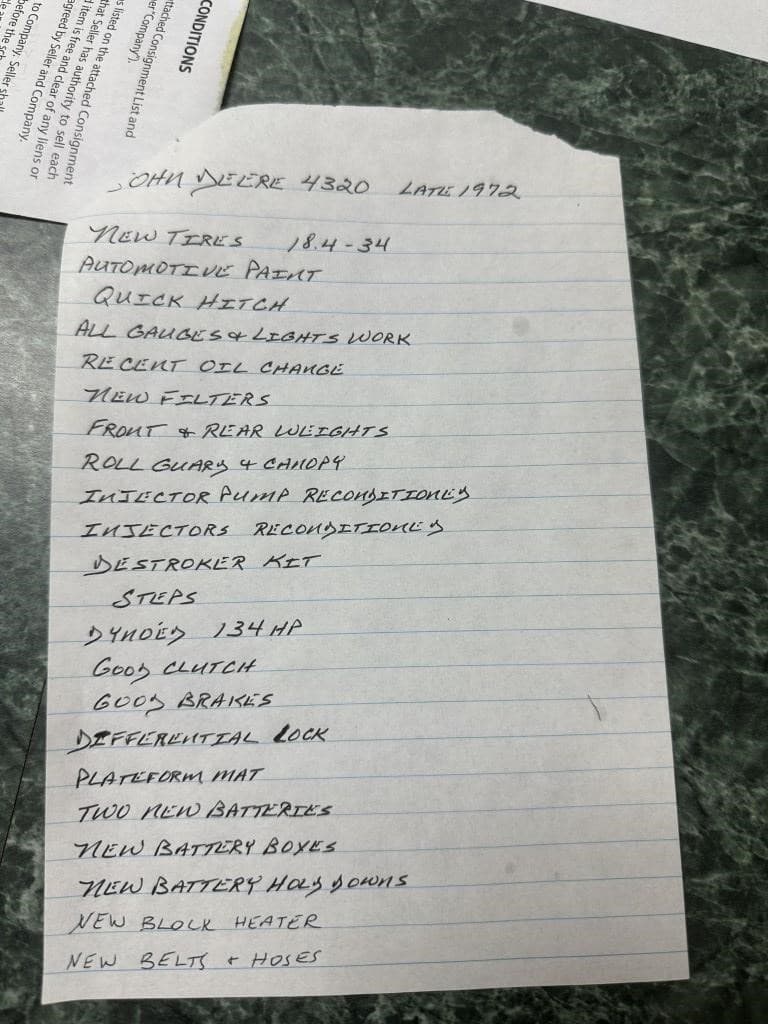 CONDITIONS
attached Consignment
er "Company").
s listed on the attached Consignment List and
that Seller has authority to sell each
item is free and clear of any liens or
agreed by Seller and Company.
to Company. Seller shall
before the
JOHN DEERE 4320 LATE 1972
NEW TIRES 18.4-34
AUTOMOTIVE PAINT
QUICK HITCH
ALL GAUGES & LIGHTS WORK
RECENT OIL CHANGE
NEW FILTERS
FRONT & REAR WEIGHTS
ROLL GUARD & CANOPY
INJECTOR PUMP RECONDITIONED
INJECTORS RECONDITIONED
DESTROKER KIT
STEPS
DYNOED 134 HP
GOOD CLUTCH
GOOD BRAKES
DIFFERENTIAL LOCK
PLATEFORM MAT
TWO NEW BATTERIES
NEW BATTERY BOXES
NEW BATTERY HOLD DOWNS
NEW BLOCK HEATER
NEW BELTS & HOSES